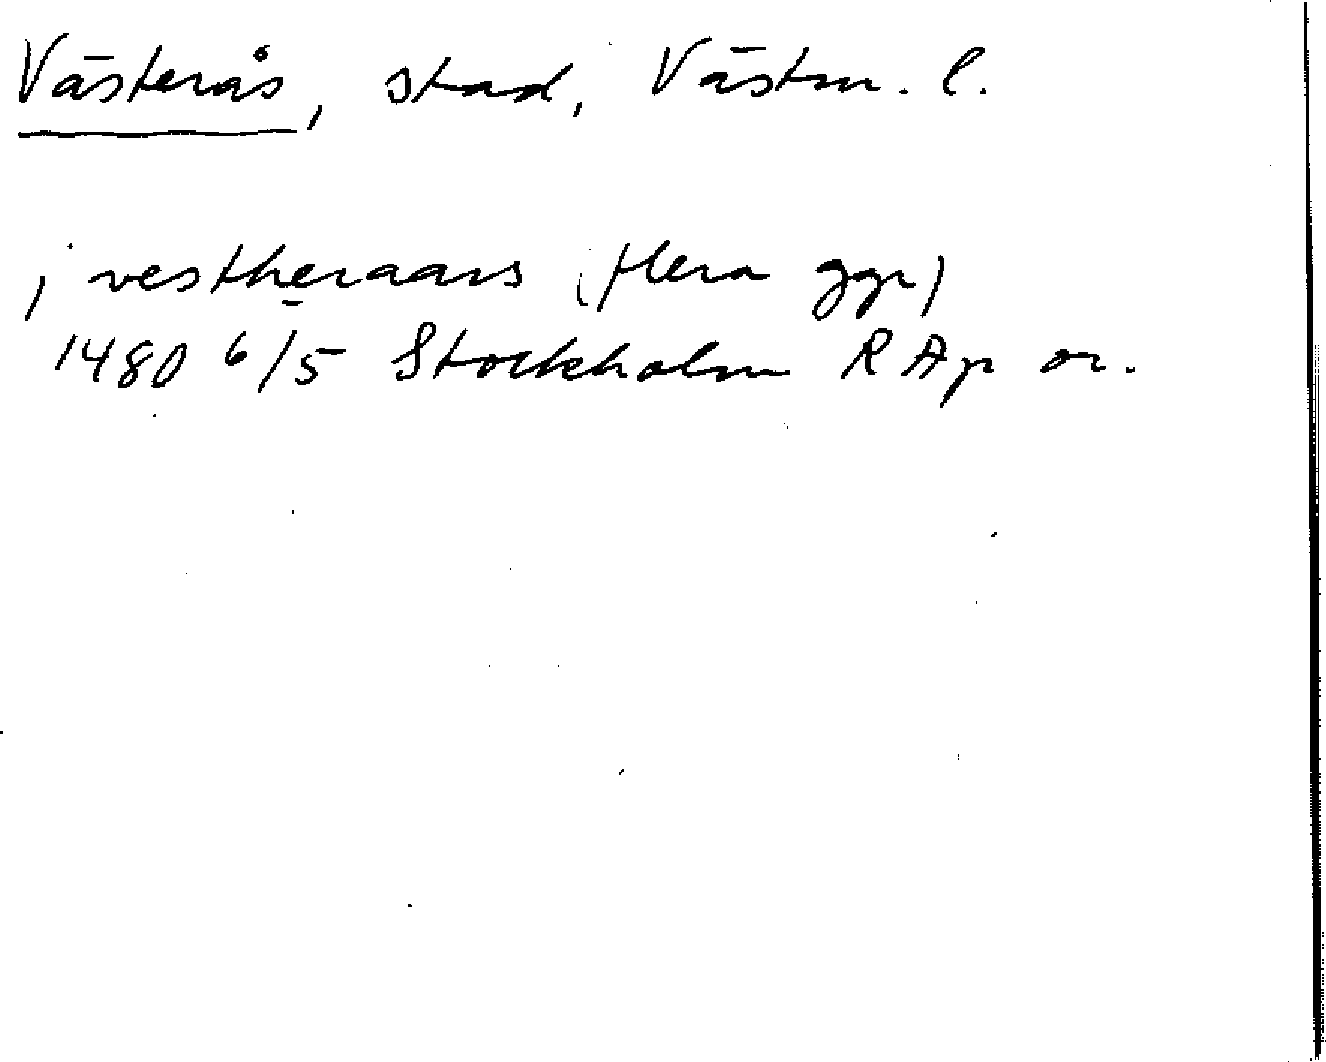 Västerås, stad, Västm. l.
j vestheraars (flera ggr)
1480 6/5 Stockholm RAp or.